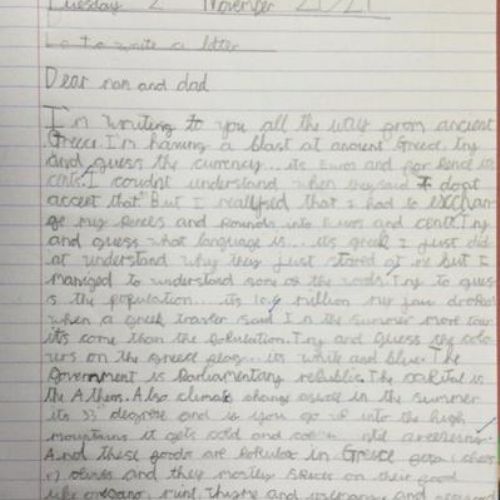 Tuesday 2 November
Lo to write a letter
Dear mom and dad
I'm writing to you all the way from ancient
Greece I'm having a blast at ancient Greece. Try
and guess the currency... its Euros and for Pence its
cents. I coudnt understand when they said I dont
accept that" But I reallised that I had to exchan-
ge my Pences and Pounds into Euros and cents. Try
and guess what language is... its greek I just did
nt understand why they just stared at me but I
managed to understand some of the words. Try to gues
s the population... its 10.4 million my jaw droped
when a greek said In the summer more tour
its come than the Population. Try and guess the colo
urs on the greece flag... its white and blue. The
Government is Parliamentary republic. The capital is
the Athens. Also climate change as well in the summer
its 33° degrese and if you go up into the high
mountains it gets cold and
And these goods are Popular in Greece
olives and they mostly on their good
like oregano, mint, thyme and